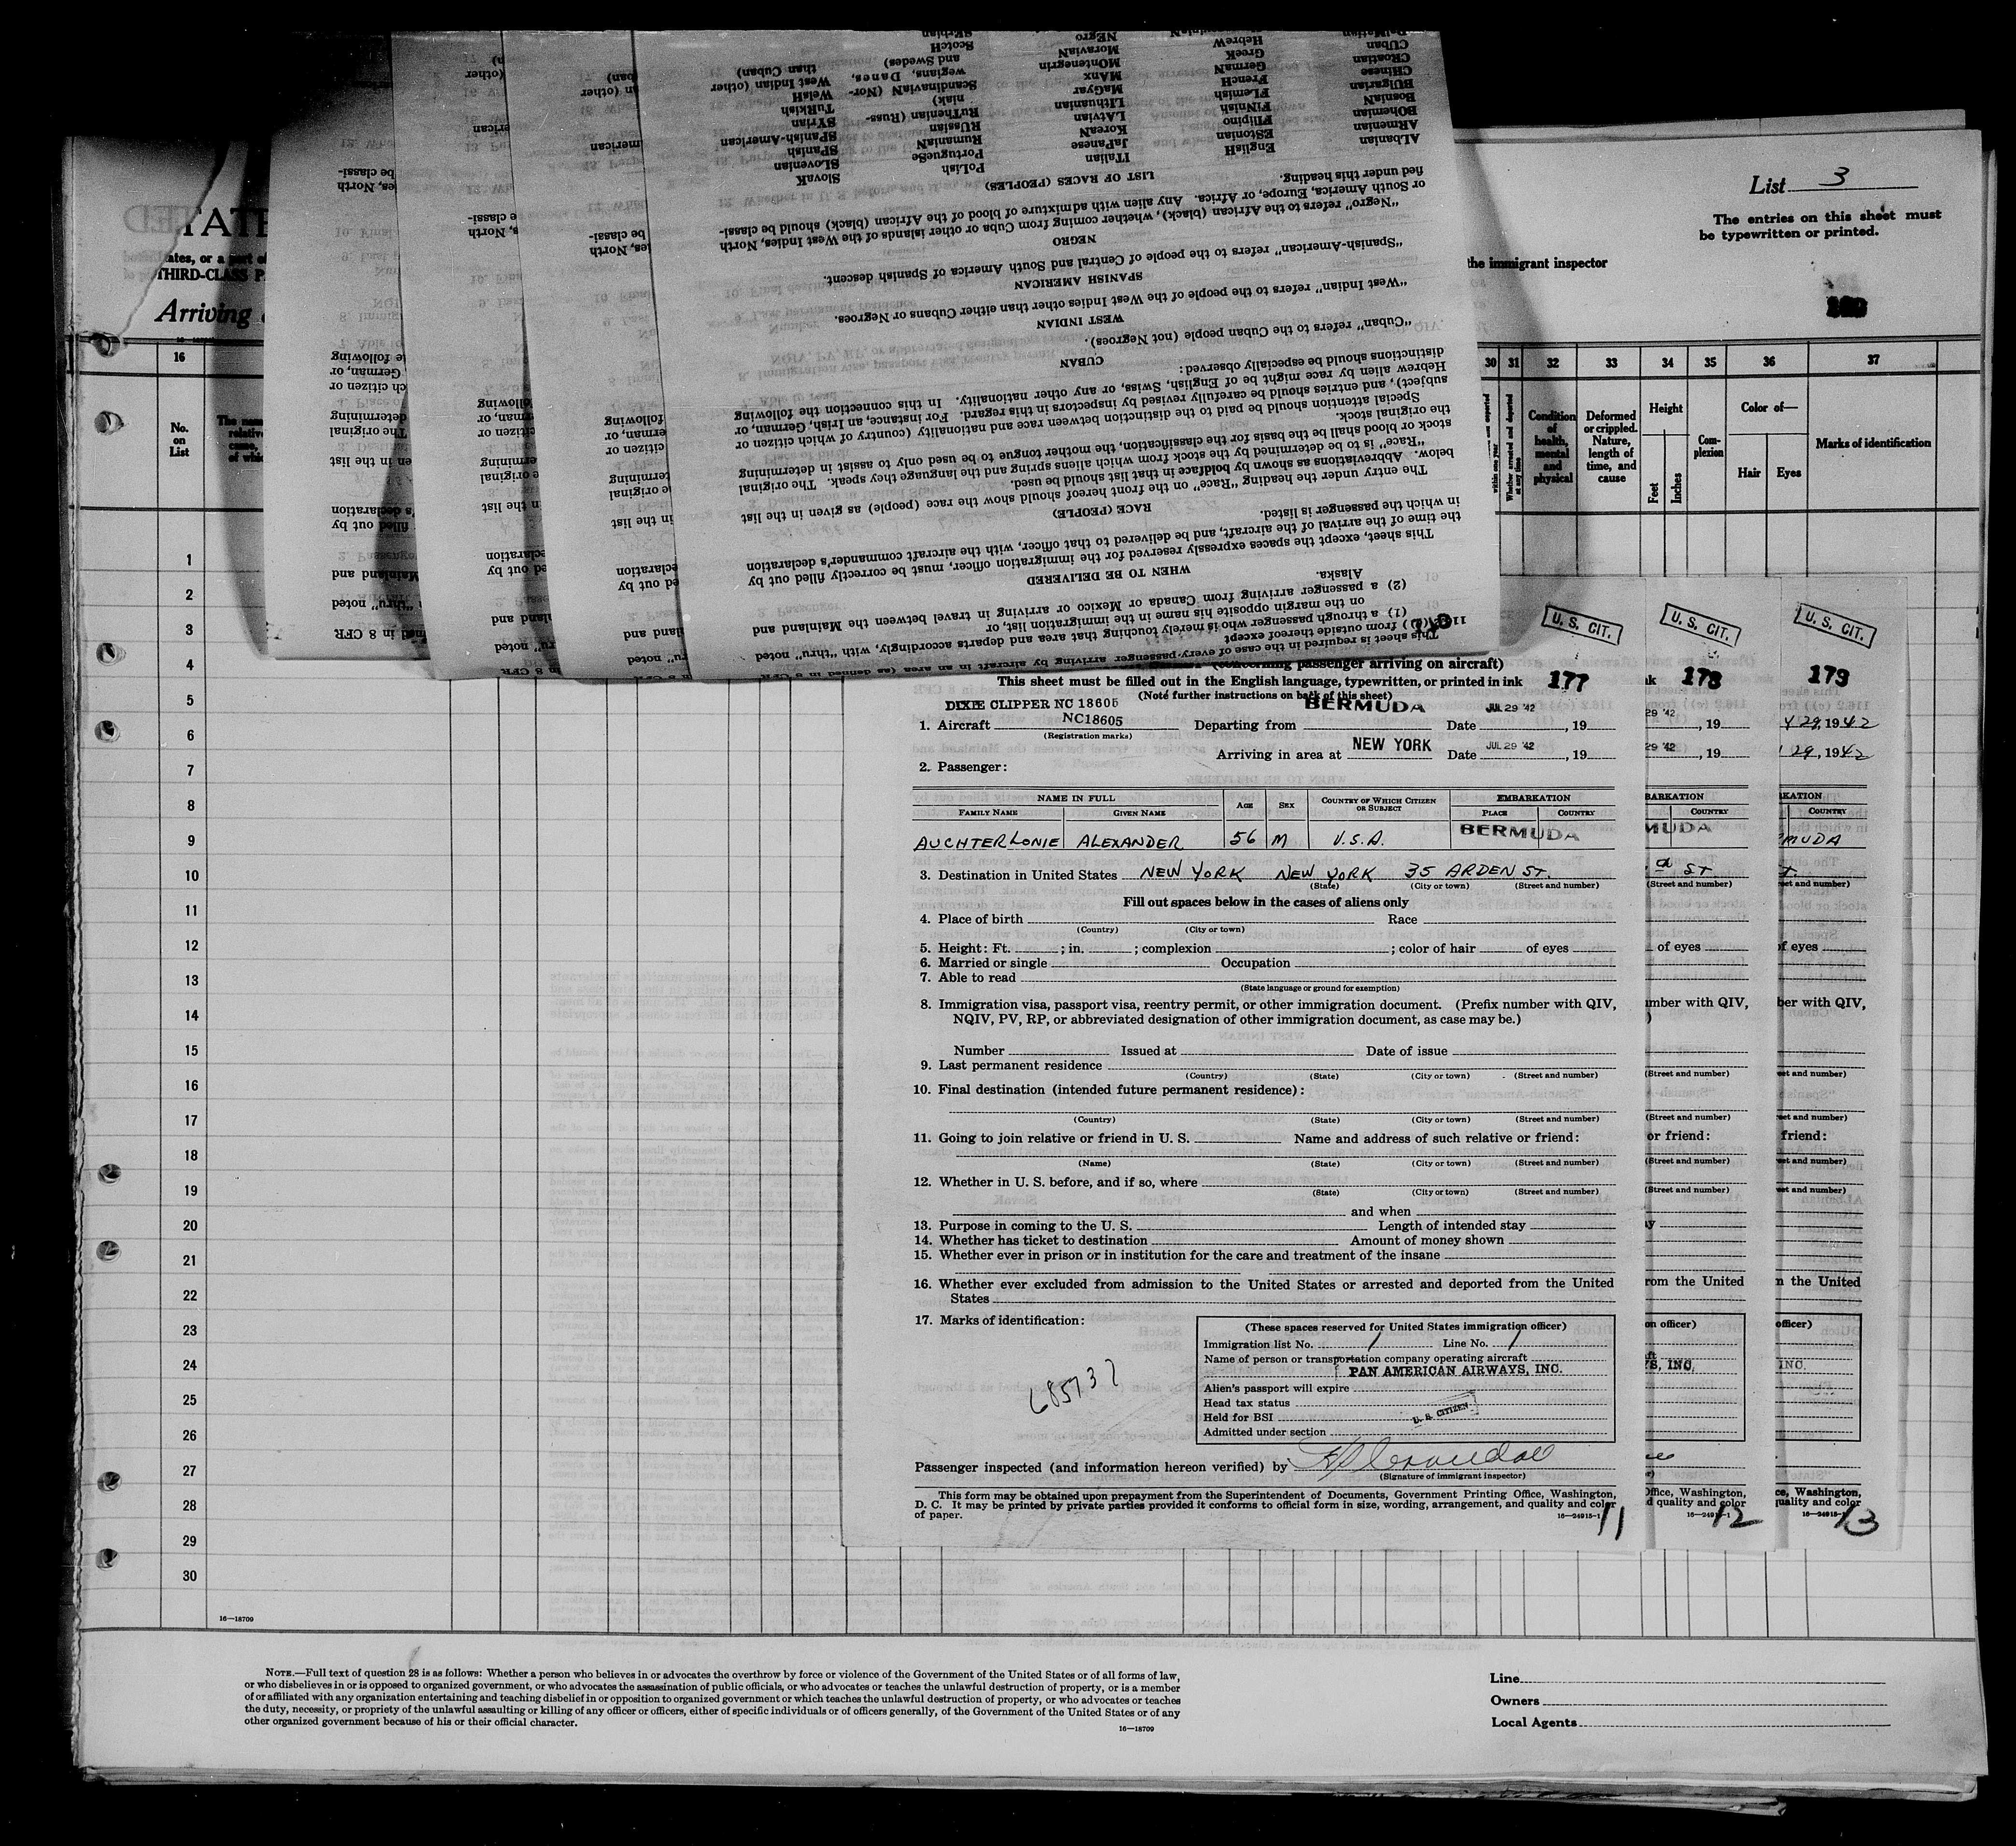 List 3
The entries on this sheet must
be typewritten or printed.
TATE
ates, or a part of
THIRD-CLASS P
Arriving
the immigrant inspector
16
No.
on
List
30 31 32 33 34 35 36 37
within one year
Whether arrested and deported
at any time
Condition
of
health,
mental
and
physical
Deformed
or crippled.
Nature,
length of
time, and
cause
Height
Feet
Inches
Com-
plexion
Color of—
Hair
Eyes
Marks of identification
1
2
3
4
5
6
7
8
9
10
11
12
13
14
15
16
17
18
19
20
21
22
23
24
25
26
27
28
29
30
16—18709
This sheet is required in the case of every passenger arriving by aircraft in an area (as defined in 8 CFR
from outside thereof except
(1) a through passenger who is merely touching that area and departs accordingly, with "thru" noted
on the margin opposite his name in the immigration list, or
(2) a passenger arriving from Canada or Mexico or arriving in travel between the Mainland and
Alaska.
WHEN TO BE DELIVERED
This sheet, except the spaces expressly reserved for the immigration officer, must be correctly filled out by
the time of the arrival of the aircraft, and be delivered to that officer, with the aircraft commander's declaration
in which the passenger is listed.
RACE (PEOPLE)
The entry under the heading "Race" on the front hereof should show the race (people) as given in the list
below. Abbreviations as shown by boldface in that list should be used.
"Race" is to be determined by the stock from which aliens spring and the language they speak. The original
stock or blood shall be the basis for the classification, the mother tongue to be used only to assist in determining
the original stock.
Special attention should be paid to the distinction between race and nationality (country of which citizen or
subject), and entries should be carefully revised by inspectors in this regard. For instance, an Irish, German, or
Hebrew alien by race might be of English, Swiss, or any other nationality. In this connection the following
distinctions should be especially observed:
CUBAN
"Cuban" refers to the Cuban people (not Negroes).
WEST INDIAN
"West Indian" refers to the people of the West Indies other than either Cubans or Negroes.
SPANISH AMERICAN
"Spanish-American" refers to the people of Central and South America of Spanish descent.
NEGRO
"Negro" refers to the African (black), whether coming from Cuba or other islands of the West Indies, North
or South America, Europe, or Africa. Any alien with admixture of blood of the African (black) should be classi-
fied under this heading.
LIST OF RACES (PEOPLES)
ALbanian
ARmenian
BOhemian
BosniaN
BUlgarian
CHinese
CRoatian
CUban
DalMatian
EnglisH
EStonian
FIlipino
FiNNish
FLemish
FrencH
GermaN
GreeK
HebreW
ITalian
JaPanese
KoreaN
LAtvian
LIthuanian
MaGyar
MAnx
MOntenegrin
MoraviaN
NEgro
PoLish
PortugueSe
RumaniaN
RUssian
RuThenian (Russ-
niak)
ScandinaviaN (Nor-
wegians, Danes,
and Swedes)
ScotcH
SErbian
SlovaK
SLovenian
SPanish
SPanish-American
SYrian
TuRkish
WelsH
West Indian (other
than Cuban)
passenger arriving on aircraft)
This sheet must be filled out in the English language, typewritten, or printed in ink 177
(Note further instructions on back of this sheet)
DIXIE CLIPPER NC 18605
1. Aircraft NC18605 Departing from BERMUDA Date JUL 29 '42, 19
(Registration marks)
Arriving in area at NEW YORK Date JUL 29 '42, 19
2. Passenger:
NAME IN FULL
FAMILY NAME GIVEN NAME AGE SEX COUNTRY OF WHICH CITIZEN OR SUBJECT EMBARKATION PLACE COUNTRY
AUCHTERLONIE ALEXANDER 56 M U.S.A. BERMUDA
3. Destination in United States NEW YORK NEW YORK 35 ARDEN ST.
(State) (City or town) (Street and number)
Fill out spaces below in the cases of aliens only
4. Place of birth Race
(Country) (City or town)
5. Height: Ft. ; in. ; complexion ; color of hair of eyes
6. Married or single Occupation
7. Able to read
(State language or ground for exemption)
8. Immigration visa, passport visa, reentry permit, or other immigration document. (Prefix number with QIV,
NQIV, PV, RP, or abbreviated designation of other immigration document, as case may be.)
Number Issued at Date of issue
9. Last permanent residence
(Country) (State) (City or town) (Street and number)
10. Final destination (intended future permanent residence):
(Country) (State) (City or town) (Street and number)
11. Going to join relative or friend in U. S. Name and address of such relative or friend:
(Name) (State) (City or town) (Street and number)
12. Whether in U. S. before, and if so, where
(State) (City or town) (Street and number)
and when
13. Purpose in coming to the U. S. Length of intended stay
14. Whether has ticket to destination Amount of money shown
15. Whether ever in prison or in institution for the care and treatment of the insane
16. Whether ever excluded from admission to the United States or arrested and deported from the United
States
17. Marks of identification:
(These spaces reserved for United States immigration officer)
Immigration list No. 1 Line No. 1
Name of person or transportation company operating aircraft
PAN AMERICAN AIRWAYS, INC.
Alien's passport will expire
Head tax status
Held for BSI U. S. CITIZEN
Admitted under section
Passenger inspected (and information hereon verified) by
(Signature of immigrant inspector)
This form may be obtained upon prepayment from the Superintendent of Documents, Government Printing Office, Washington,
D. C. It may be printed by private parties provided it conforms to official form in size, wording, arrangement, and quality and color
of paper.
16—24915-1
11
U. S. CIT.
U. S. CIT.
178
29 '42, 19
29 '42, 19
BARKATION
COUNTRY
MUDA
ST
(Street and number)
of eyes
mber with QIV,
(Street and number)
(Street and number)
or friend:
(Street and number)
(Street and number)
rom the United
on officer)
YS, INC.
Office, Washington,
d quality and color
16—24915-1
12
U. S. CIT.
179
Y 29, 1942
29, 1942
KATION
COUNTRY
MUDA
of eyes
ber with QIV,
friend:
n the United
officer)
INC.
ce, Washington,
quality and color
16—24915-1
13
NOTE.—Full text of question 28 is as follows: Whether a person who believes in or advocates the overthrow by force or violence of the Government of the United States or of all forms of law,
or who disbelieves in or is opposed to organized government, or who advocates the assassination of public officials, or who advocates or teaches the unlawful destruction of property, or is a member
of or affiliated with any organization entertaining and teaching disbelief in or opposition to organized government or which teaches the unlawful destruction of property, or who advocates or teaches
the duty, necessity, or propriety of the unlawful assaulting or killing of any officer or officers, either of specific individuals or of officers generally, of the Government of the United States or of any
other organized government because of his or their official character.
16—18709
Line
Owners
Local Agents